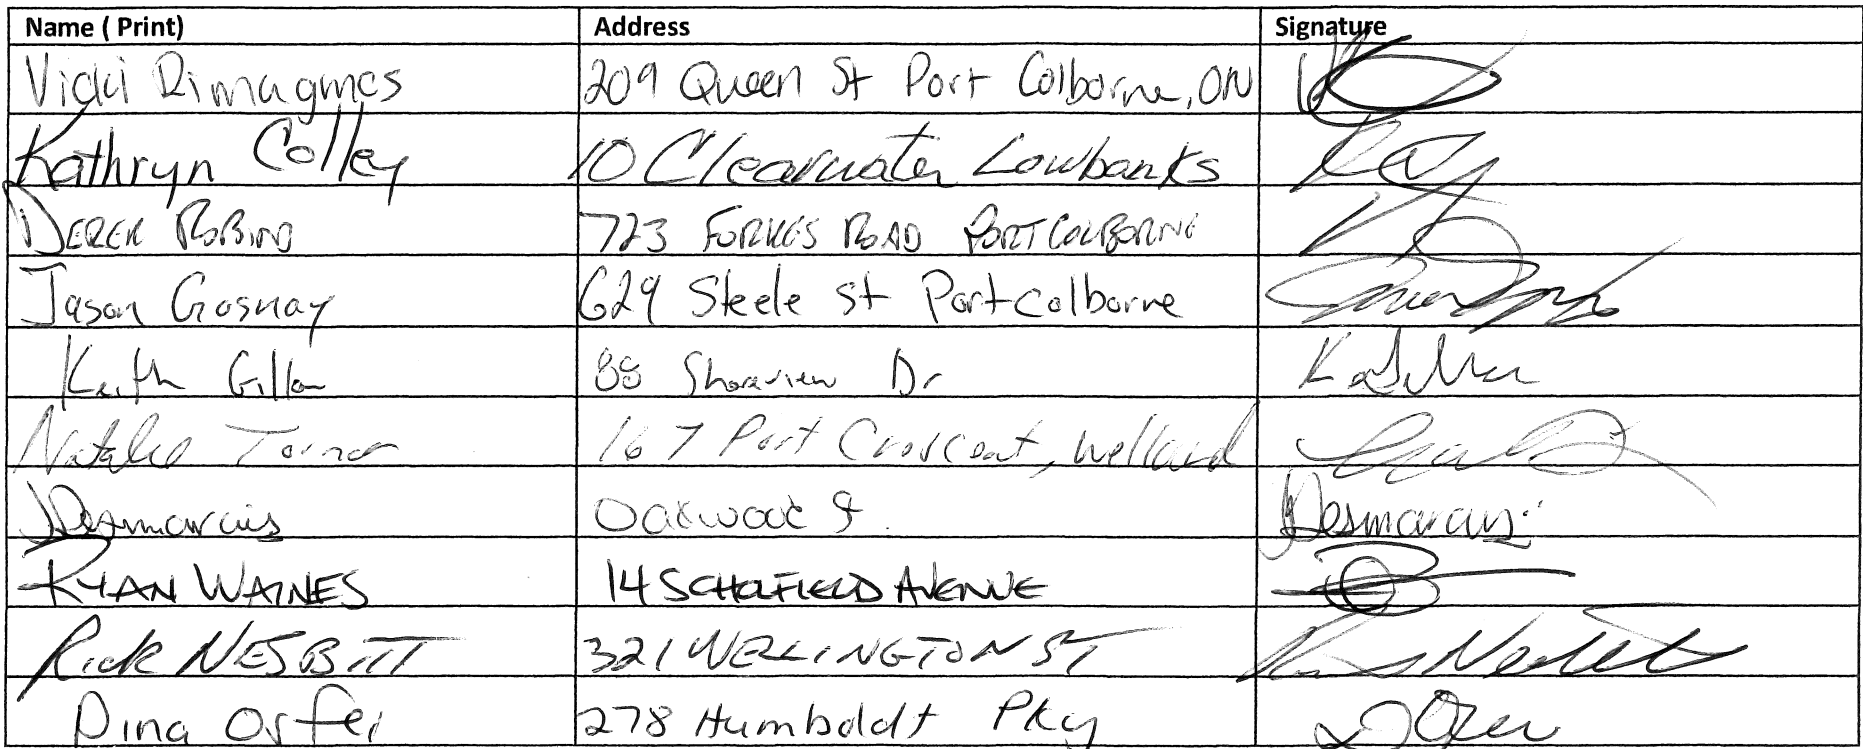 Name ( Print) Address Signature
Vicki Rimagmcs 209 Queen St Port Colborne, ON
Kathryn Colley 10 Clearwater Lowbanks
DEREK ROBINS 723 FORKES ROAD PORT COLBORNE
Jason Gosnay 629 Steele St Port colborne
Keith Gillon 88 Shoreview Dr
Natalie 167 Port Crescent, Welland
Desmarais Oakwood St. Desmarais
RYAN WAINES 14 SCHOLFIELD AVENUE
Rick NESBITT 321 WELLINGTON ST Nesbitt
Dina Orfei 278 Humboldt Pky